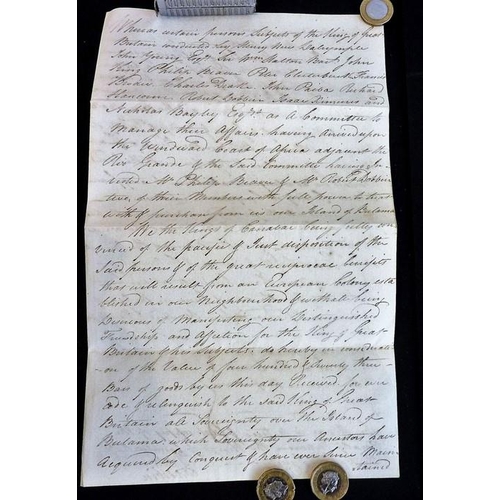 Whereas certain persons Subjects of the King of Great
Britain conducted by Henry Hew Dalrymple
John Young Esqr Sir Wm Halton Bart John
King Philip Beaver Peter Clutterbuck Francis
Brodie Charles Drake John Paiba Richard
Hancorne Robert Dobbin Isaac Ximenes and
Nicholas Bayley Esqrs as a Committee to
Manage their Affairs having arrived upon
the Windward Coast of Africa adjacent the
Rio Grande & the Said Committee having in
vested Mr Philip Beaver & Mr Robert Dobbin
two of their Members with full power to treat
with & purchase from us our Island of Bulama
We the Kings of Canabac being fully con
vinced of the pacific & Just disposition of the
Said persons & of the great reciprocal benefits
that will result from an European Colony esta
blished in our Neighbourhood & withall being
Desirous of Manifesting our Distinguished
Friendship and Affection for the King of Great
Britain & his Subjects do hereby in considerati
on of the Value of four hundred & Seventy three
Bars of goods by us this day Received for ever
cede & relinquish to the Said King of Great
Britain all Sovereignty over the Island of
Bulama which Sovereignty our Ancestors have
Acquired by Conquest & have ever Since Main
tained